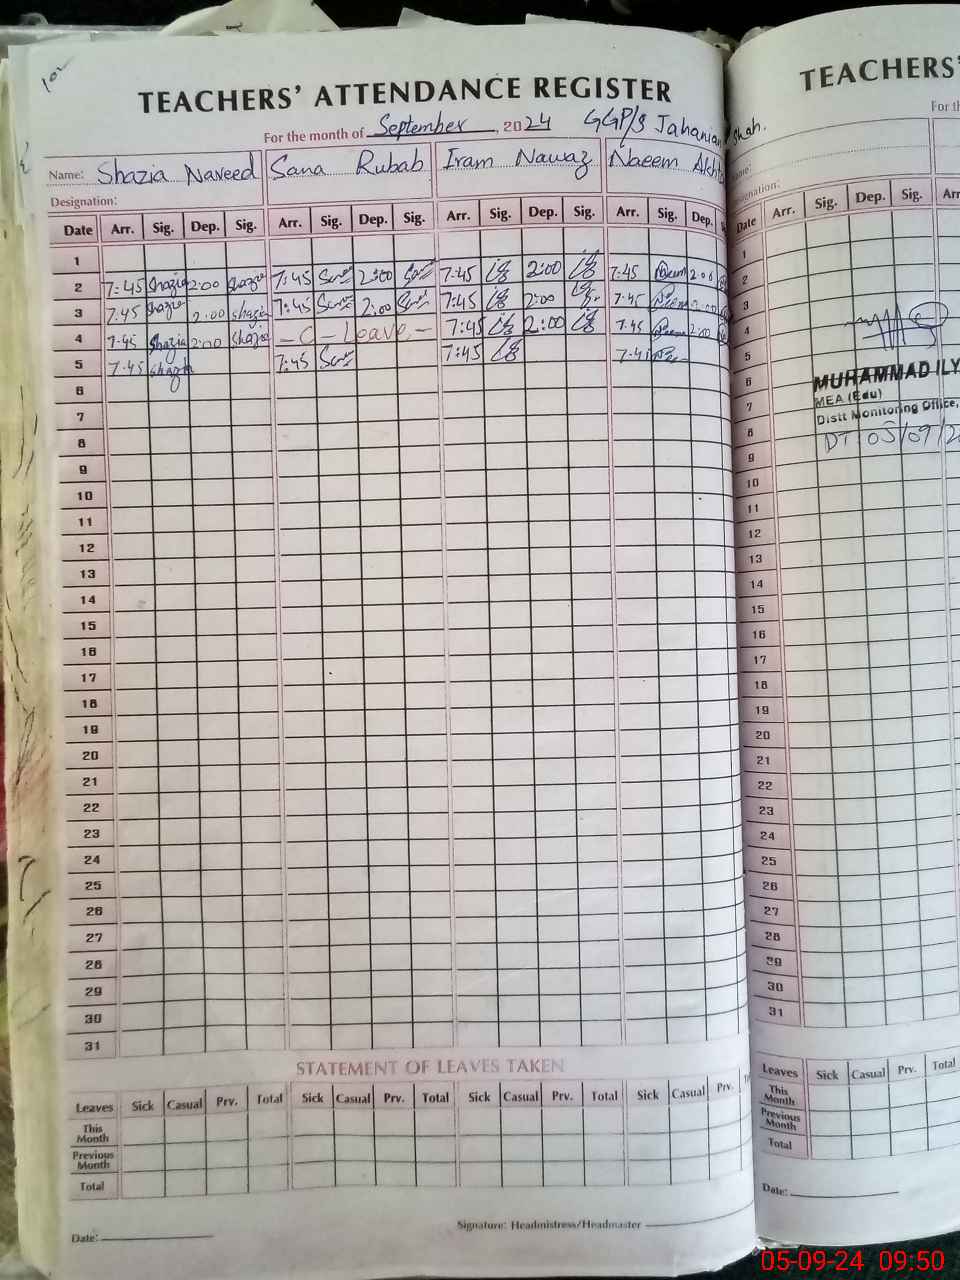 TEACHERS' ATTENDANCE REGISTER
For the month of September, 2024 GGP/S Jahanian Shah.
Name: Shazia Naveed Sana Rubab Iram Nawaz Naeem Akht
Designation:
Date Arr. Sig. Dep. Sig. Arr. Sig. Dep. Sig. Arr. Sig. Dep. Sig. Arr. Sig. Dep. S
1
2 7:45 Shazia 2:00 Shazia 7:45 2:00 7:45 2:00 7:45 Naeem 2:00
3 7:45 Shazia 2:00 Shazia 7:45 2:00 7:45 2:00 7:45 2:00
4 7:45 Shazia 2:00 Shazia - C Leave - 7:45 2:00 7:45 2:00
5 7:45 Shazia 7:45 7:45 7:45
6
7
8
9
10
11
12
13
14
15
16
17
18
19
20
21
22
23
24
25
26
27
28
29
30
31
STATEMENT OF LEAVES TAKEN
Leaves Sick Casual Prv. Total Sick Casual Prv. Total Sick Casual Prv. Total Sick Casual Prv.
This Month
Previous Month
Total
Date:
Signature: Headmistress/Headmaster
TEACHERS'
For th
Name:
esignation:
Date Arr. Sig. Dep. Sig. Arr
1
2
3
4
5
6
7
8
9
10
11
12
13
14
15
16
17
18
19
20
21
22
23
24
25
26
27
28
29
30
31
MUHAMMAD ILY
MEA (Edu)
Distt Monitoring Office,
DT 05/09/2
Leaves Sick Casual Prv. Total
This Month
Previous Month
Total
Date:
05-09-24 09:50